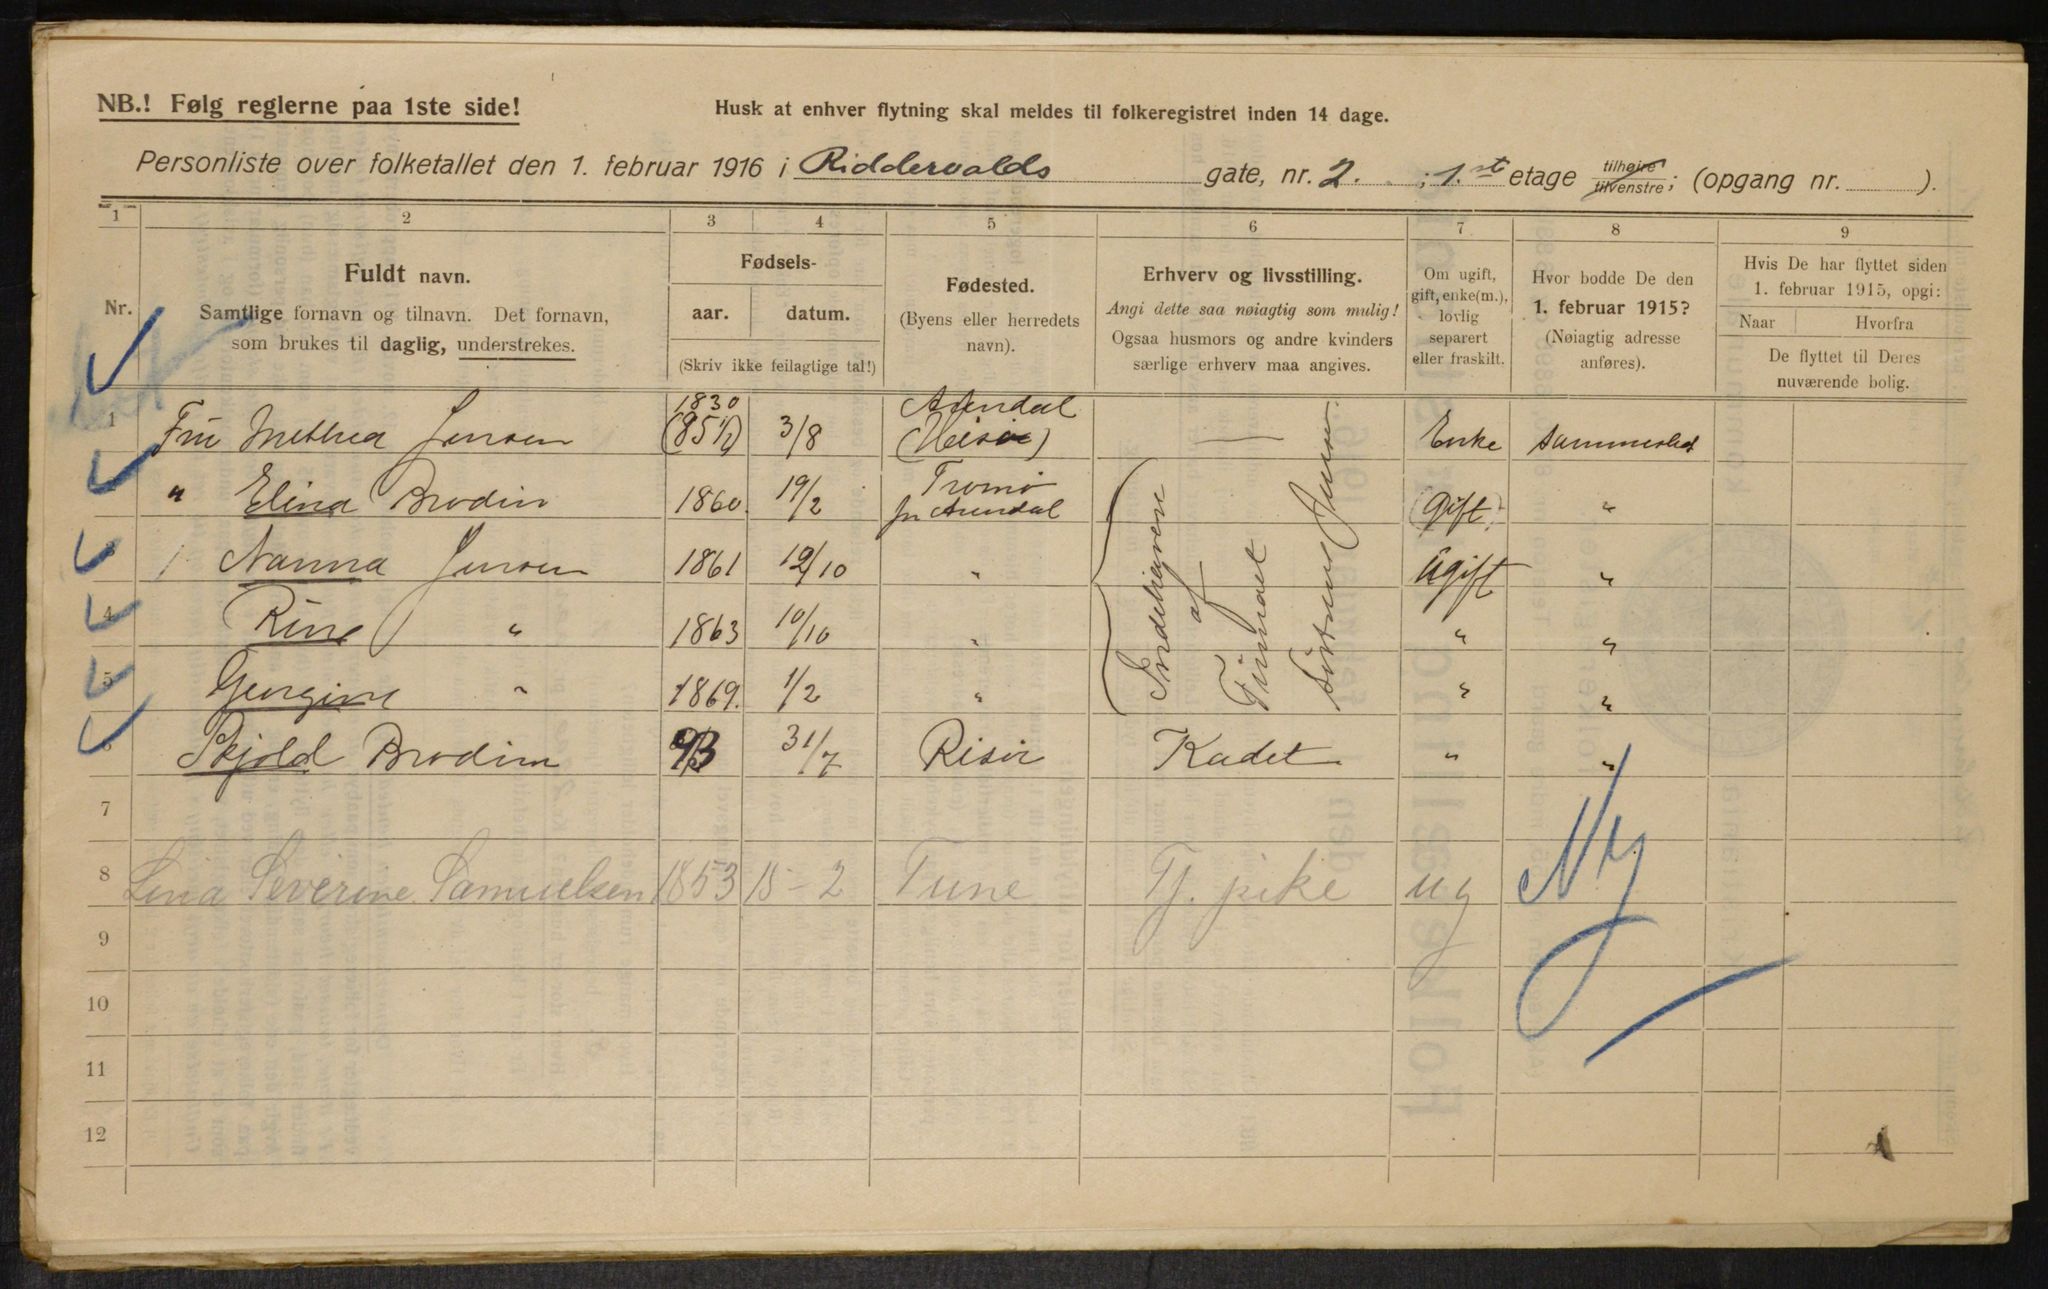 NB.! Følg reglerne paa 1ste side!
Husk at enhver flytning skal meldes til folkeregistret inden 14 dage.
Personliste over folketallet den 1. februar 1916 i Riddervolds gate, nr. 2. ; 1.st etage tilhøire tilvenstre; (opgang nr. ).
1 2 3 4 5 6 7 8 9
Nr.
Fuldt navn.
Samtlige fornavn og tilnavn. Det fornavn,
som brukes til daglig, understrekes.
Fødsels-
aar. datum.
(Skriv ikke feilagtige tal!)
Fødested.
(Byens eller herredets
navn).
Erhverv og livsstilling.
Angi dette saa nøiagtig som mulig!
Ogsaa husmors og andre kvinders
særlige erhverv maa angives.
Om ugift,
gift, enke(m.),
lovlig
separert
eller fraskilt.
Hvor bodde De den
1. februar 1915?
(Nøiagtig adresse
anføres).
Hvis De har flyttet siden
1. februar 1915, opgi:
Naar Hvorfra
De flyttet til Deres
nuværende bolig.
1 Fru Methea Jensen 1830 (85 1/2) 3/8 Arendal (Hisø) — Enke Sammested
" Elina Brodin 1860. 19/2 Tromø pr Arendal (Gift) "
3 Nanna Jensen 1861 12/10 " Ugift "
4 Rina " 1863 10/10 " " "
5 Georgine " 1869. 1/2 " " "
Indehaverne
af
Firmaet
Jensen
6 Skjold Brodin 93 31/7 Risør Kadet " "
7
8 Lina Severine Samuelsen 1853 15-2 Tune Tj. pike ug Ny
9
10
11
12